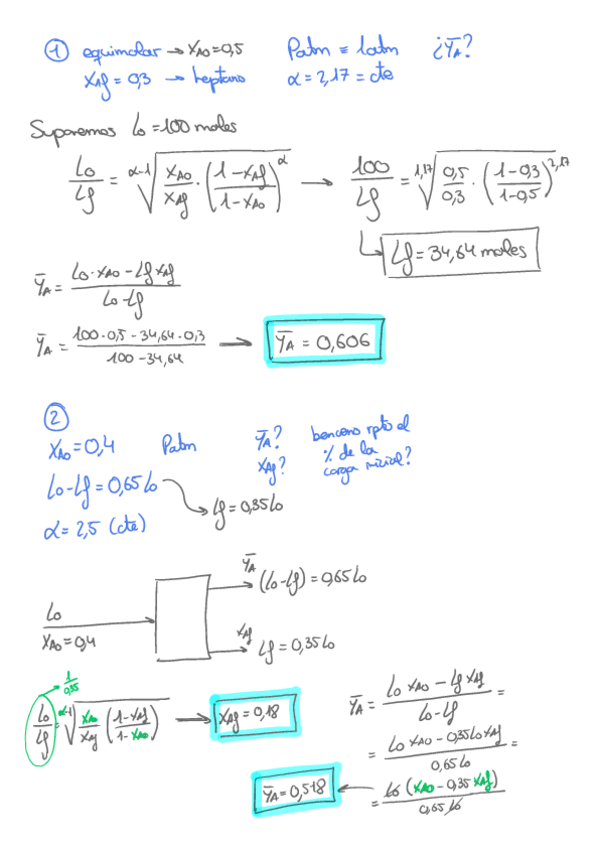 ① equimolar → XA0=0,5 Patm = 1atm ¿ȲA?
XAf = 0,3 → heptano α = 2,17 = cte
Suponemos L0 = 100 moles
L0/Lf = α-1√(XA0/XAf · ((1-XAf)/(1-XA0))^α) → 100/Lf = 1,17√(0,5/0,3 · ((1-0,3)/(1-0,5))^2,17)
Lf = 34,64 moles
ȲA = (L0·XA0 - Lf XAf)/(L0-Lf)
ȲA = (100·0,5 - 34,64·0,3)/(100-34,64) → ȲA = 0,606
②
XA0 = 0,4 Patm ȲA? benceno rpto el
XAf? % de la
carga inicial?
L0-Lf = 0,65L0 → Lf = 0,35L0
α = 2,5 (cte)
ȲA
(L0-Lf) = 0,65L0
L0
XA0 = 0,4
XAf
Lf = 0,35L0
1/0,35
L0/Lf = α-1√(XA0/XAf ((1-XAf)/(1-XA0))) → XAf = 0,18
ȲA = (L0 XA0 - Lf XAf)/(L0-Lf) =
= (L0 XA0 - 0,35L0 XAf)/(0,65L0) =
= (L0 (XA0 - 0,35 XAf))/(0,65 L0)
ȲA = 0,518